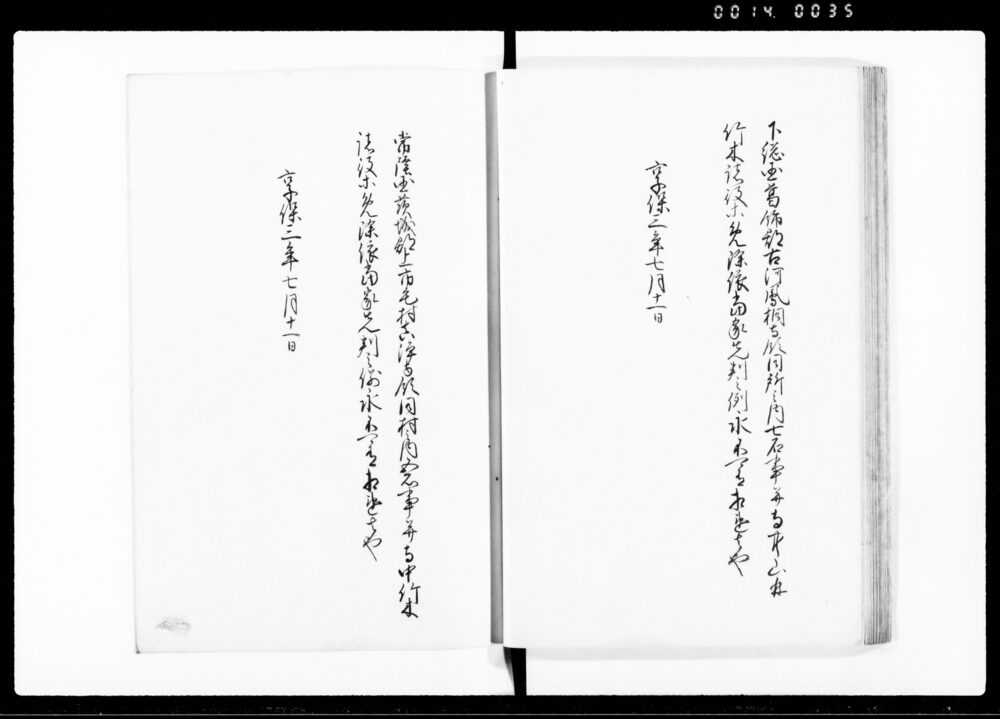 0014 0035
下総国葛飾郡古河鳳桐寺領同所之内七石事并寺中山林
竹木諸役等免除依当家先判之例永不可有相違者也
享保三年七月十一日
常陸国茨城郡上市毛村 寺領同村之内 石事并寺中竹木
諸役等免除依当家先判之例永不可有相違者也
享保三年七月十一日